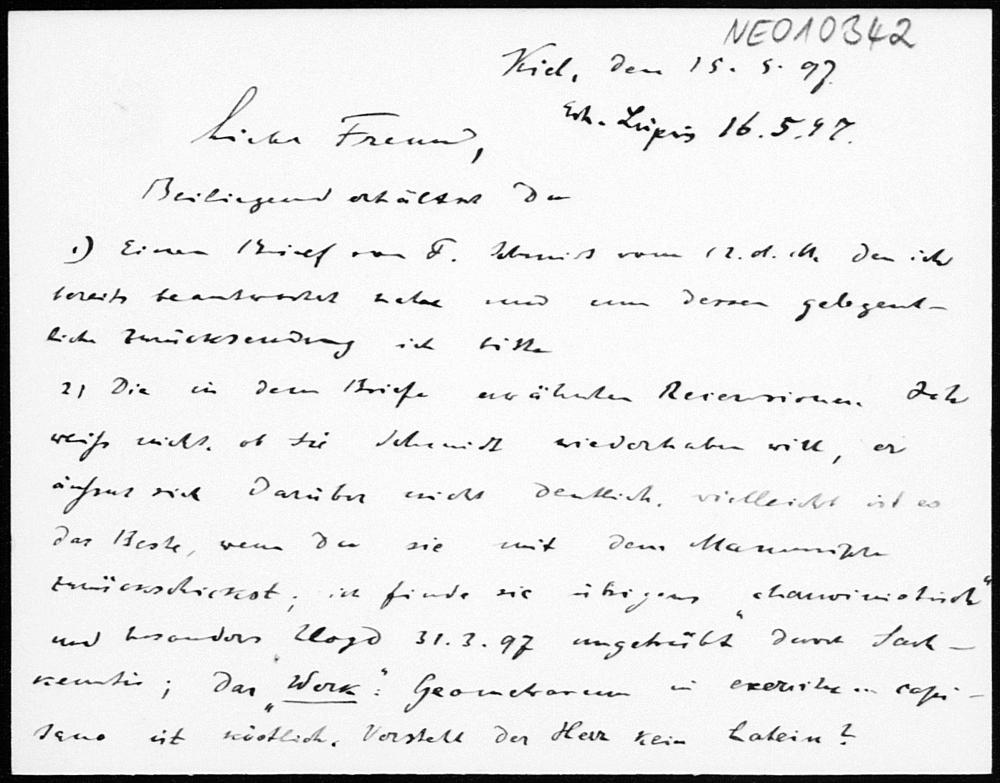 NEO10342
Kiel, den 15. 5. 97.
Erh. Leipzig 16.5.97.
Lieber Freund,
Beiliegend erhältst Du
1.) Einen Brief von F. Schmidt vom 12. d. M. den ich
bereits beantwortet habe und um dessen gelegent-
liche Zurücksendung ich bitte
2) Die in dem Briefe erwähnten Recensionen. Ich
weiß nicht, ob sie Schmidt wiederhaben will, er
äußert sich darüber nicht deutlich. vielleicht ist es
das Beste, wenn Du sie mit dem Manuscripte
zurückschickst; ich finde sie übrigens „chauvinistisch"
und besonders Lloyd 31.3.97 „ungetrübt" durch Sach-
kenntnis; das „Werk": Geometrarum in exercitu
ist köstlich. Versteht der Herr kein Latein?